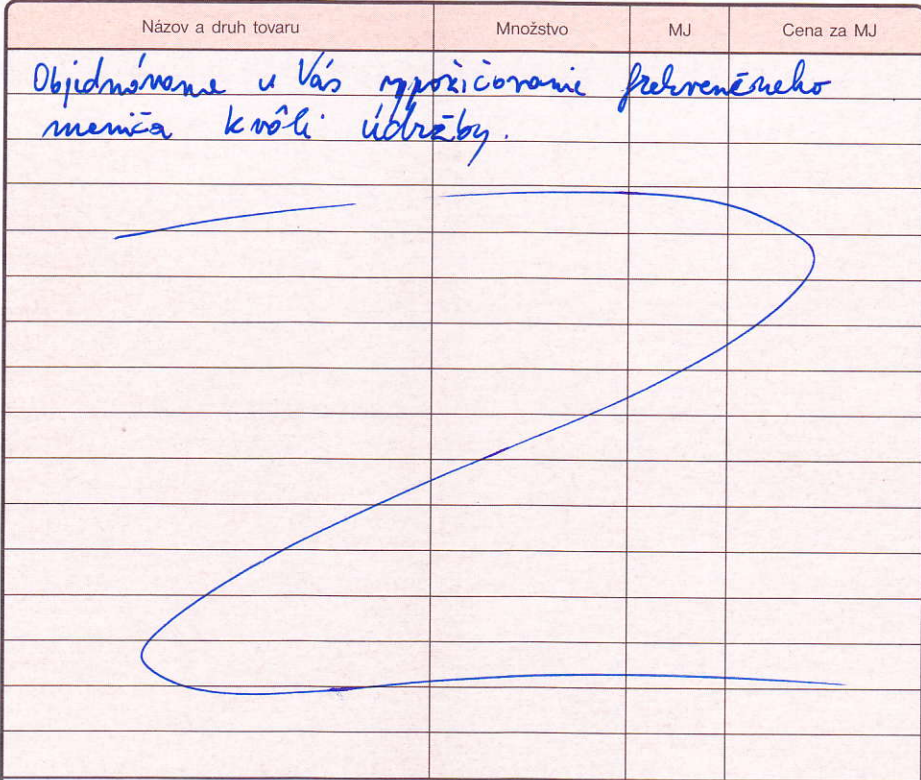 Názov a druh tovaru Množstvo MJ Cena za MJ
Objednávame u Vás vypožičovanie frekvenčného
meniča kvôli údržby.